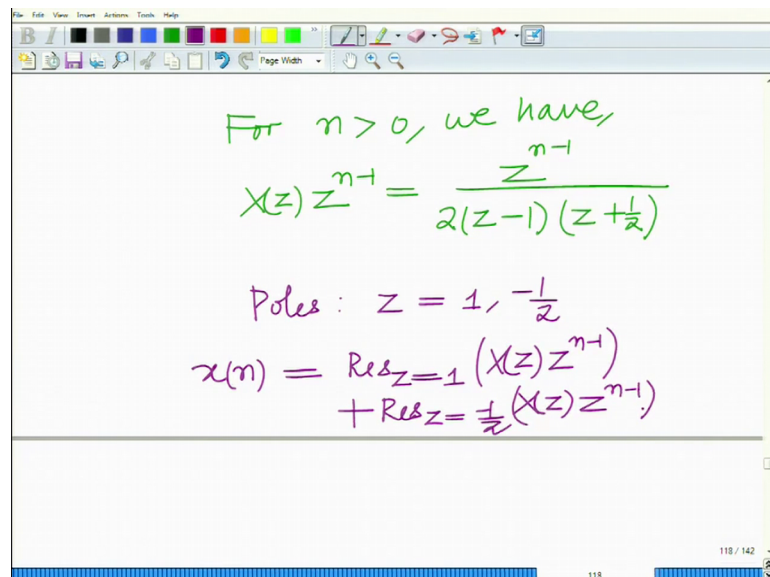 File Edit View Insert Actions Tools Help
B I
Page Width
For n > 0, we have,
X(z) z^{n-1} = z^{n-1} / 2(z-1)(z+1/2)
Poles: z = 1, -1/2
x(n) = Res_{z=1} (X(z) z^{n-1})
+ Res_{z=1/2} (X(z) z^{n-1})
118 / 142
118